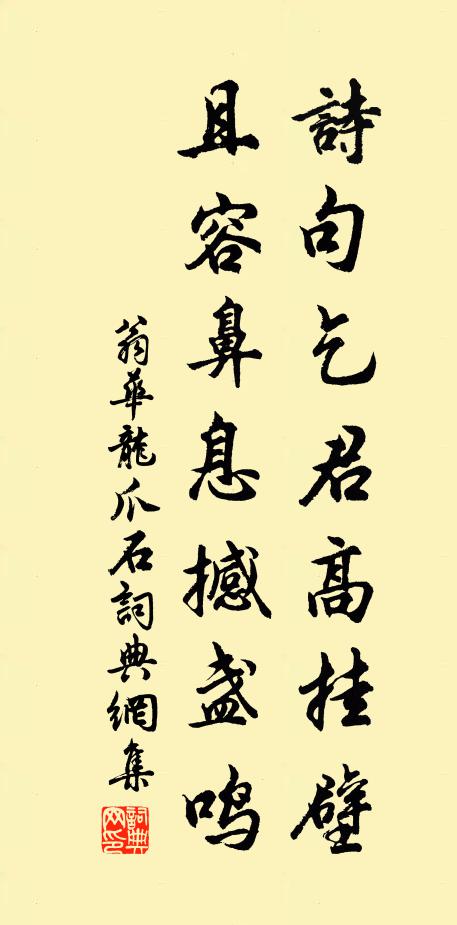 詩句乞君高挂壁
且容鼻息撼盏鸣
翁華龍爪石詞典網集
詞典网印